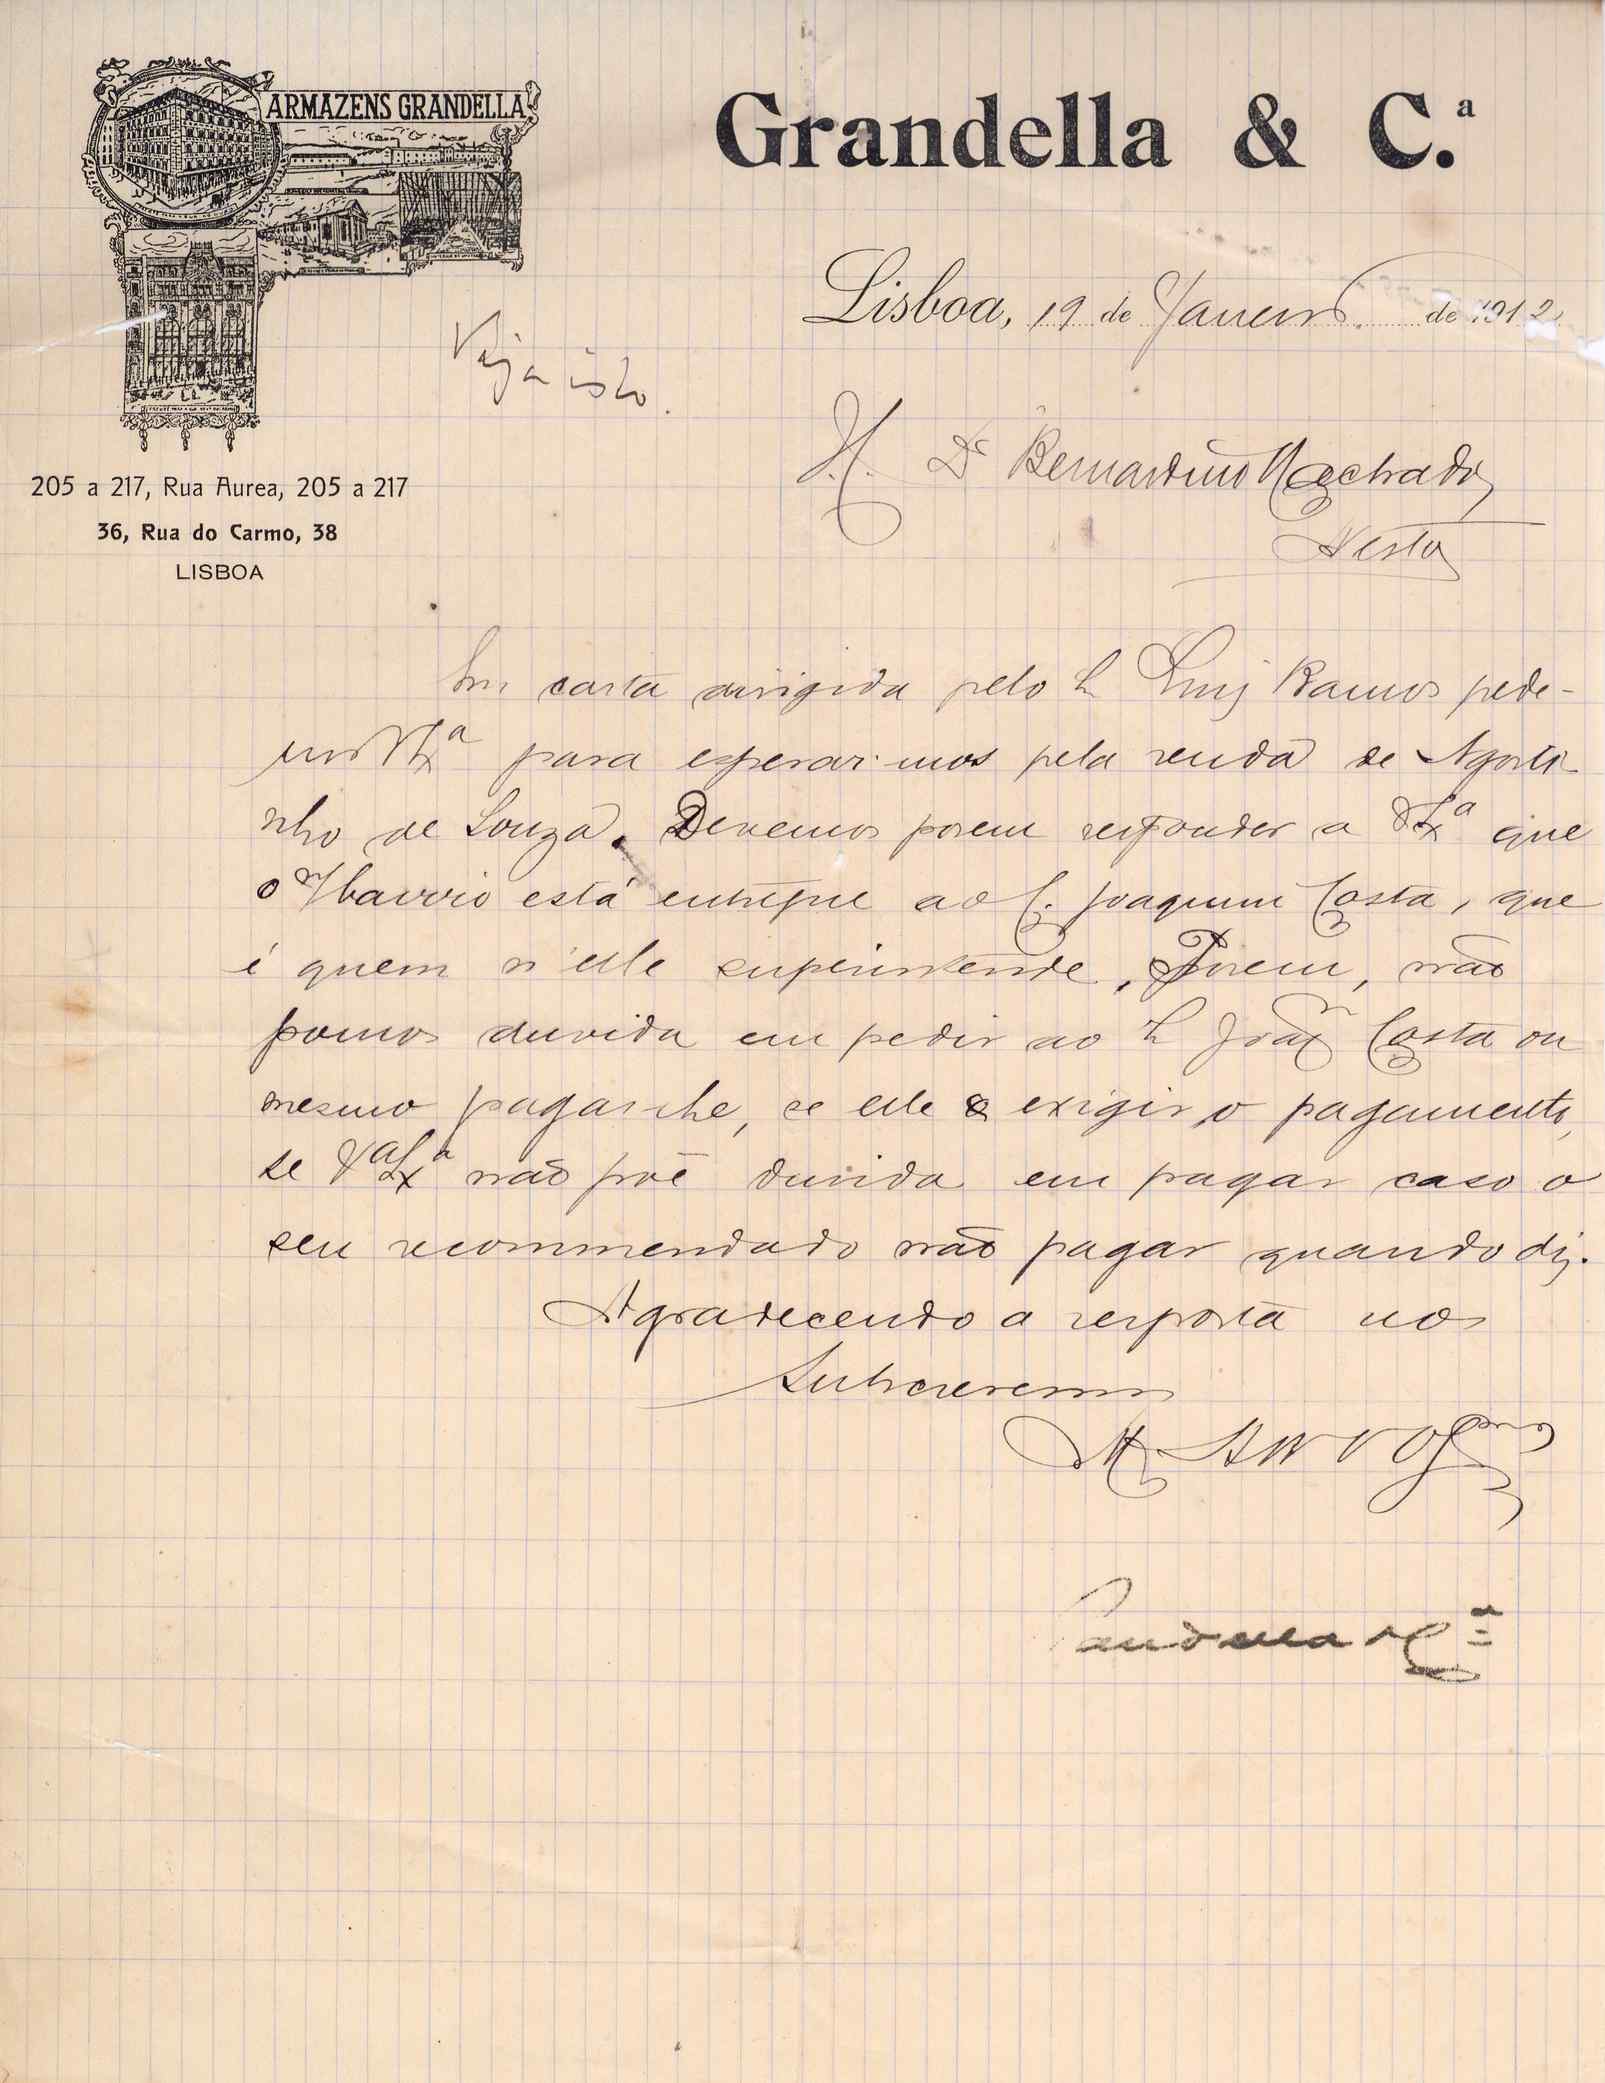 ARMAZENS GRANDELLA
Grandella & C.ª
Lisboa, 19 de Janeiro de 1912
Veja isto.
Dr Bernardino Machado
Nesta
205 a 217, Rua Aurea, 205 a 217
36, Rua do Carmo, 38
LISBOA
Em carta dirigida pelo Sr Luiz Ramos pede-
nos V Exª para esperarmos pela renda de Agosti-
nho de Souza. Devemos porem responder a V Exª que
o Bairro está entregue ao S. Joaquim Costa, que
é quem n'elle superintende. Porem, não
pomos duvida em pedir ao Sr Joaqm Costa ou
mesmo pagar-lhe, se elle exigir o pagamento,
se Vª Exª não põe duvida em pagar caso o
seu recommendado não pagar quando diz.
Agradecendo a resposta nos
Subscrevemos
Grandella & Cª